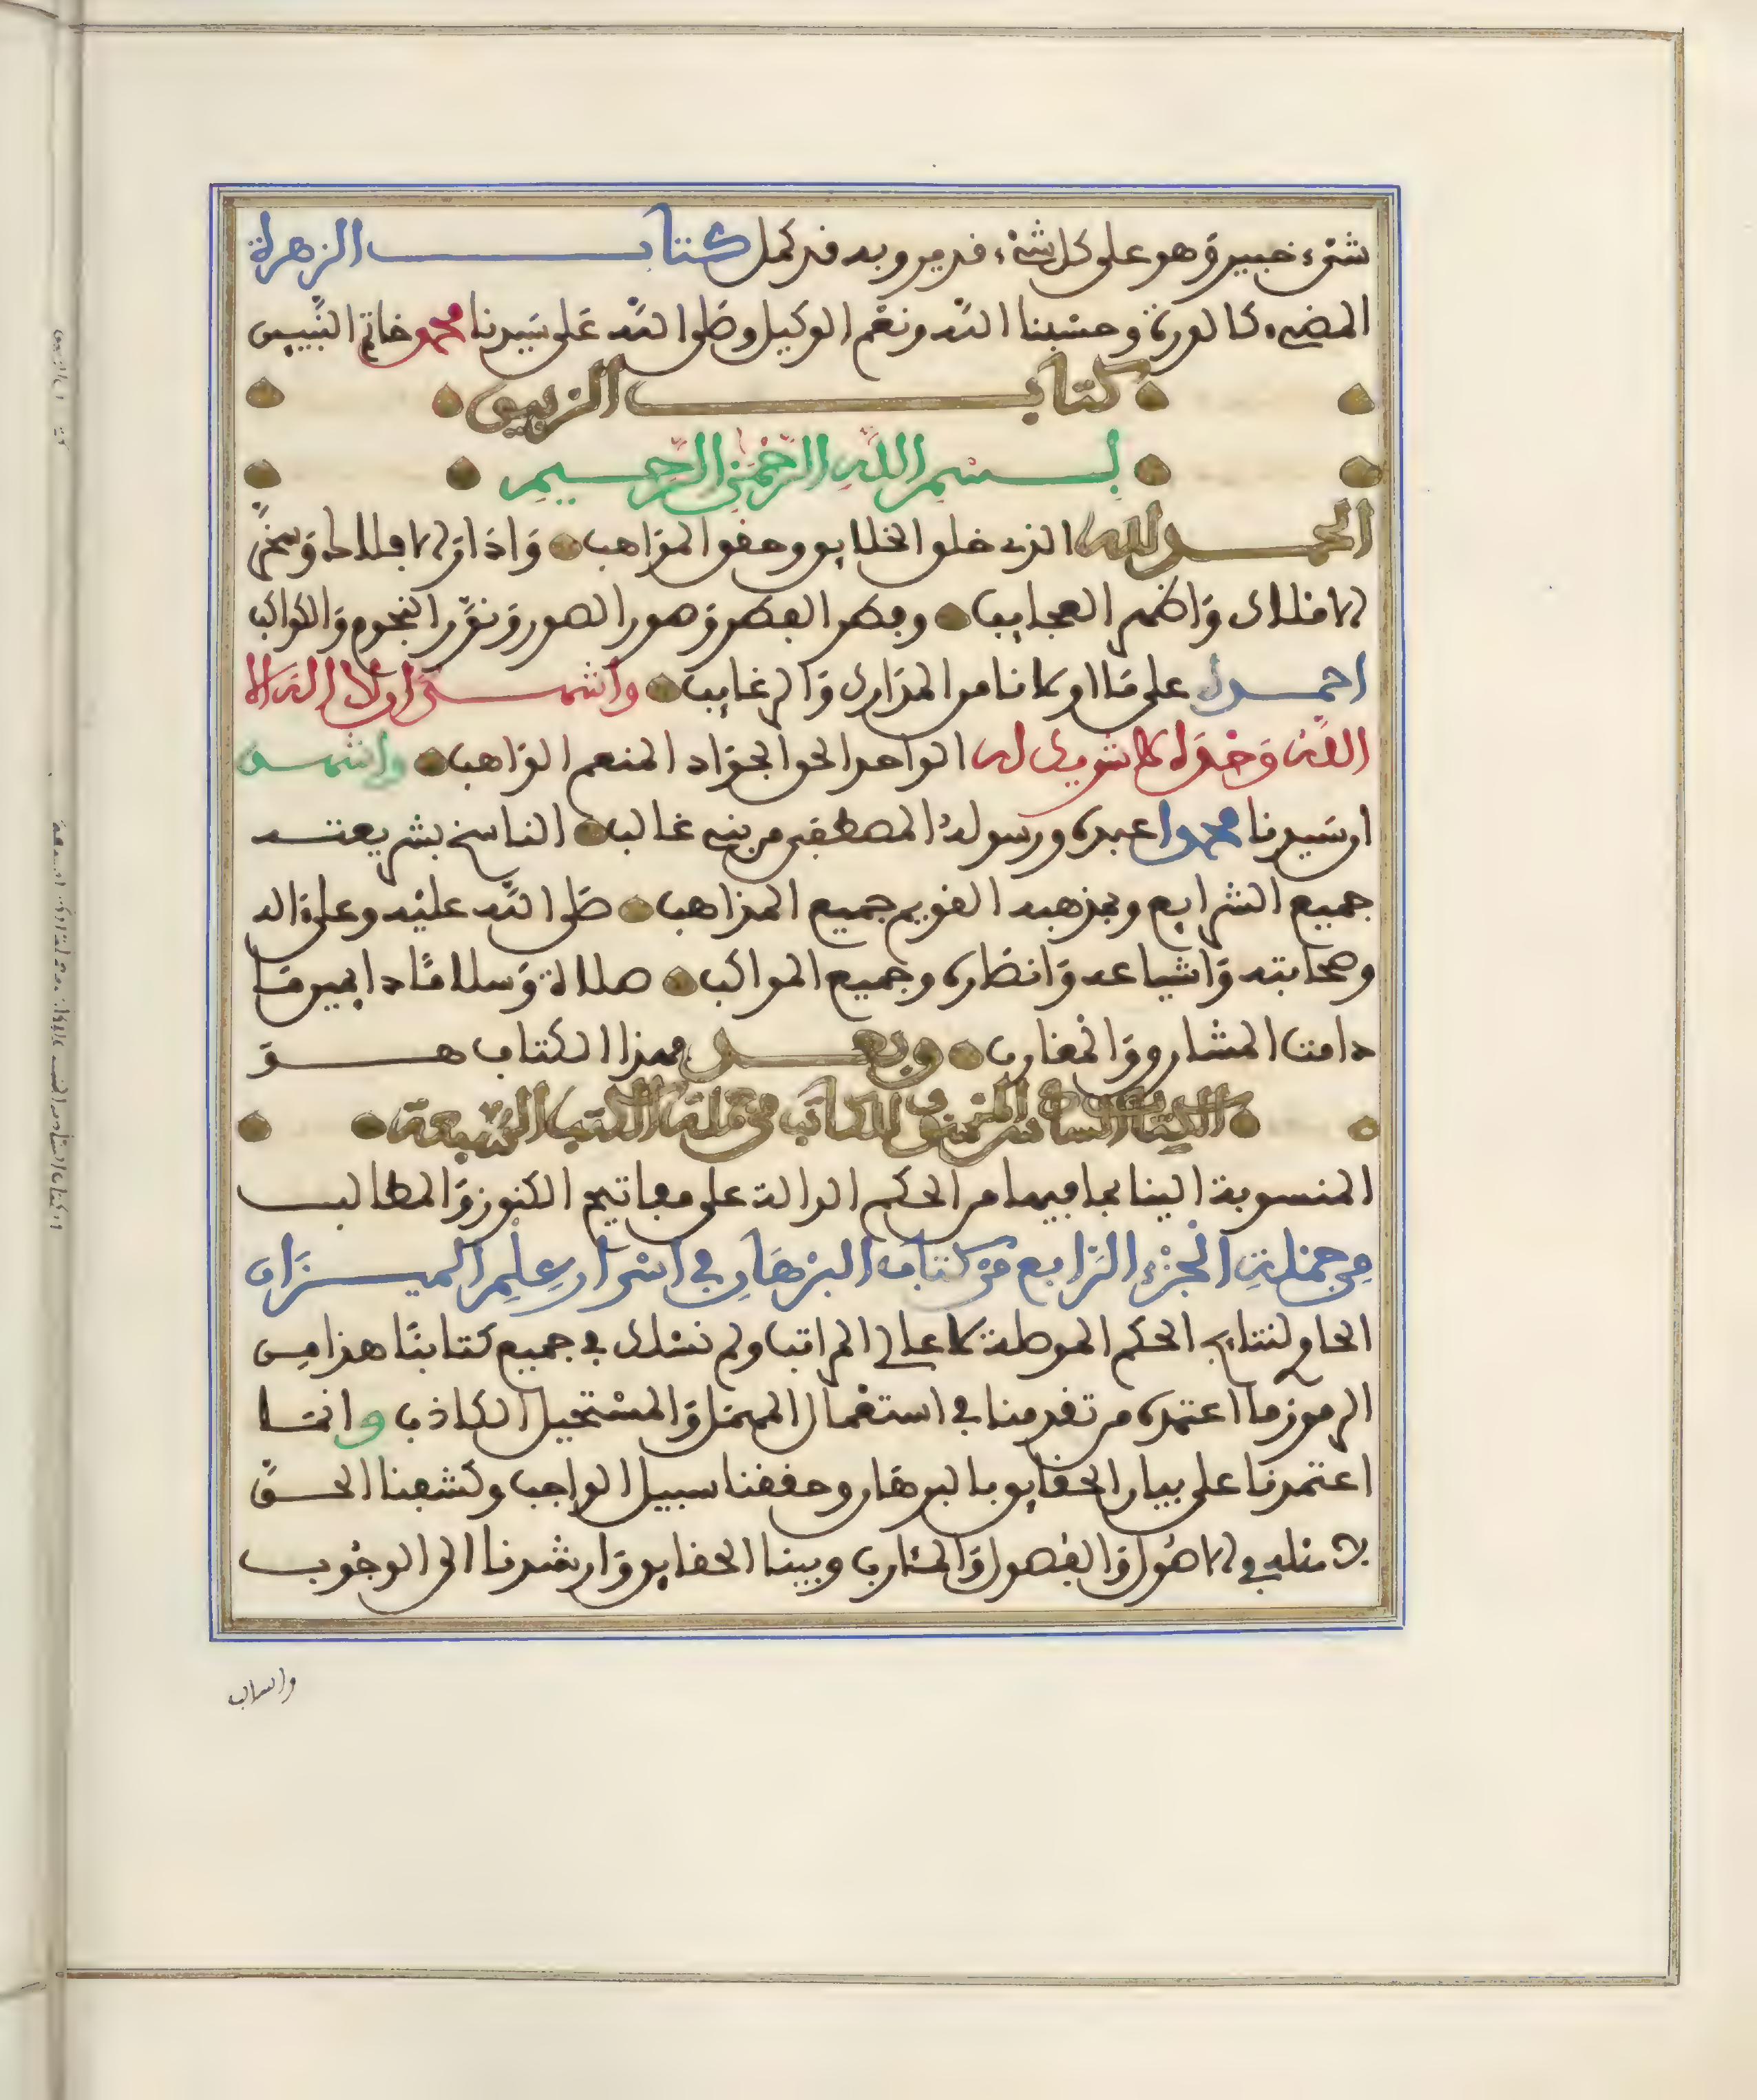 شىء خبير وهو على كل شىء قدير وبه قد كمل كتاب الزهرة
المضيء كالدرة وحسبنا الله ونعم الوكيل وصلى الله على سيدنا محمد خاتم النبيين
كتاب الزيبق
بسم الله الرحمن الرحيم
الحمد لله الذي خلق الخلايق وحقق المذاهب وادار الافلاك وسخر
الاملاك واظهر العجايب وفطر الفطر وصور الصور ونور النجوم والكواكب
احمده على ما اولانا من المدارك والرغايب واشهد ان لا اله الا
الله وحده لا شريك له الواحد الحق الجواد المنعم الواهب واشهد
ان سيدنا محمدا عبده ورسوله المصطفى من بني غالب الناسخ بشريعته
جميع الشرايع وبمذهبه القويم جميع المذاهب صلى الله عليه وعلى اله
وصحابته واشياعه وانصاره وجميع المواكب صلاة وسلاما دايمين ما
دامت المشارق والمغارب وبعد فهذا الكتاب هو
الكتاب السادس في جملة الكتب السبعة
المنسوبة الينا بما فيها من الحكم الدالة على مفاتيح الكنوز والمطالب
من جملة الجزء الرابع من كتاب البرهان في اسرار علم الميزان
الحاوي لنتايج الحكم الموصلة لاعلى المراتب ولم نسلك في جميع كتابنا هذا من
الرموز ما اعتمده من تقدمنا في استعمال المهمل والمستحيل الكاذب وانما
اعتمدنا على بيان الحقايق بالبرهان وحققنا سبيل الواجب وكشفنا الحق
في الاصول والفصول والمئارب وبينا الحقايق وارشدنا الى الوجوب